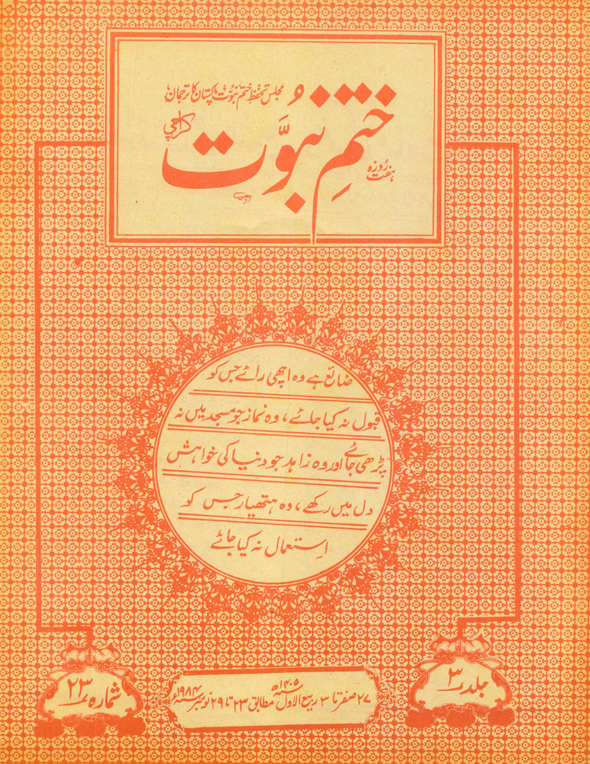 مجلس تحفظ ختم نبوت پاکستان کا ترجمان
ہفت روزہ
ختمِ نبوّت
کراچی
ضائع ہے وہ اچھی رائے جس کو
قبول نہ کیا جائے، وہ نماز جو مسجد میں نہ
پڑھی جائے اور وہ زاہد جو دنیا کی خواہش
دل میں رکھے، وہ ہتھیار جس کو
استعمال نہ کیا جائے
جلد ۳
۲۷ صفر تا ۳ ربیع الاول ۱۴۰۵ھ مطابق ۲۳ تا ۲۹ نومبر ۱۹۸۴ء
شمارہ ۲۳